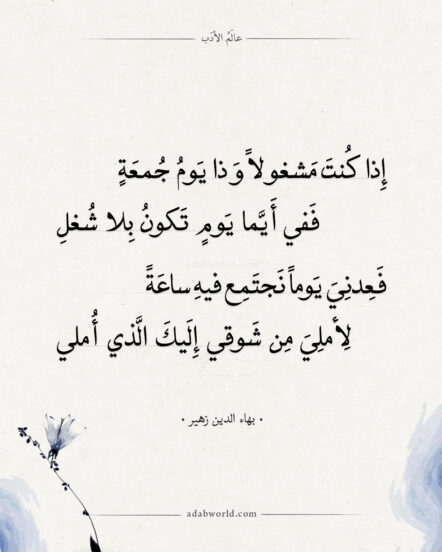 عالَمُ الأدَب
إِذا كُنتَ مَشغولاً وَذا يَومُ جُمعَةٍ
فَفي أَيَّما يَومٍ تَكونُ بِلا شُغلِ
فَعِدنِيَ يَوماً نَجتَمِع فيهِ ساعَةً
لِأَملِيَ مِن شَوقي إِلَيكَ الَّذي أُملي
• بهاء الدين زهير •
adabworld.com